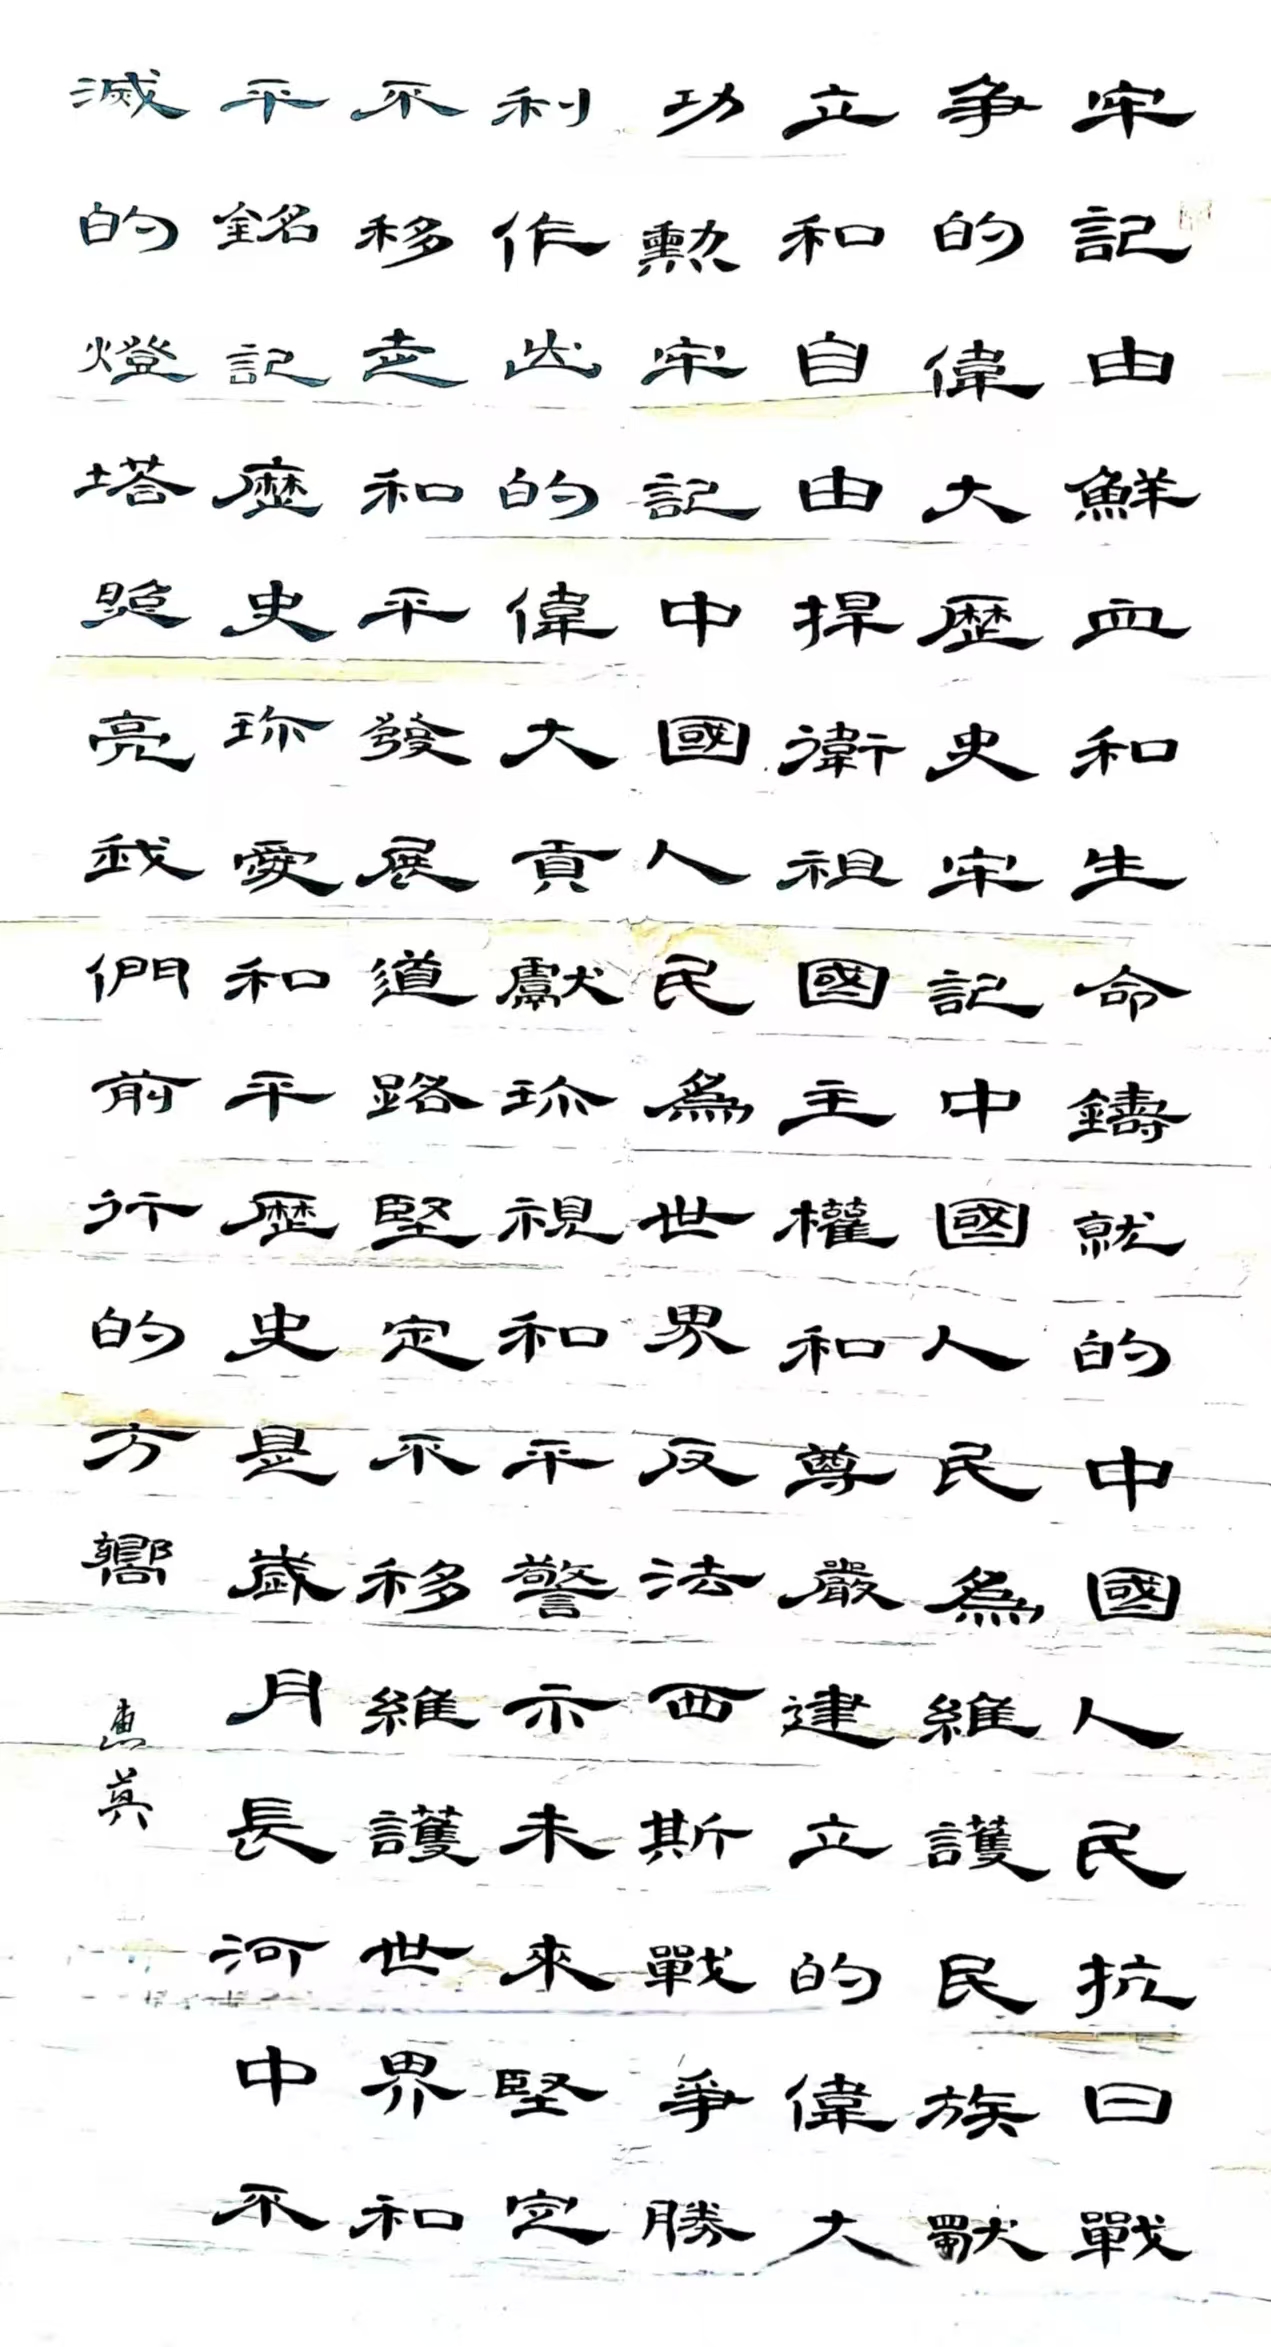 牢記由鮮血和生命鑄就的中國人民抗日戰
争的偉大歷史牢記中國人民為維護民族獨
立和自由捍衛祖國主權和尊嚴建立的偉大
功勲牢記中國人民為世界反法西斯戰爭勝
利作出的偉大貢獻珎視和平警示未來堅定
不移走和平發展道路堅定不移維護世界和
平銘記歷史珎愛和平歷史是歲月長河中不
滅的燈塔照亮我們前行的方嚮
惠英